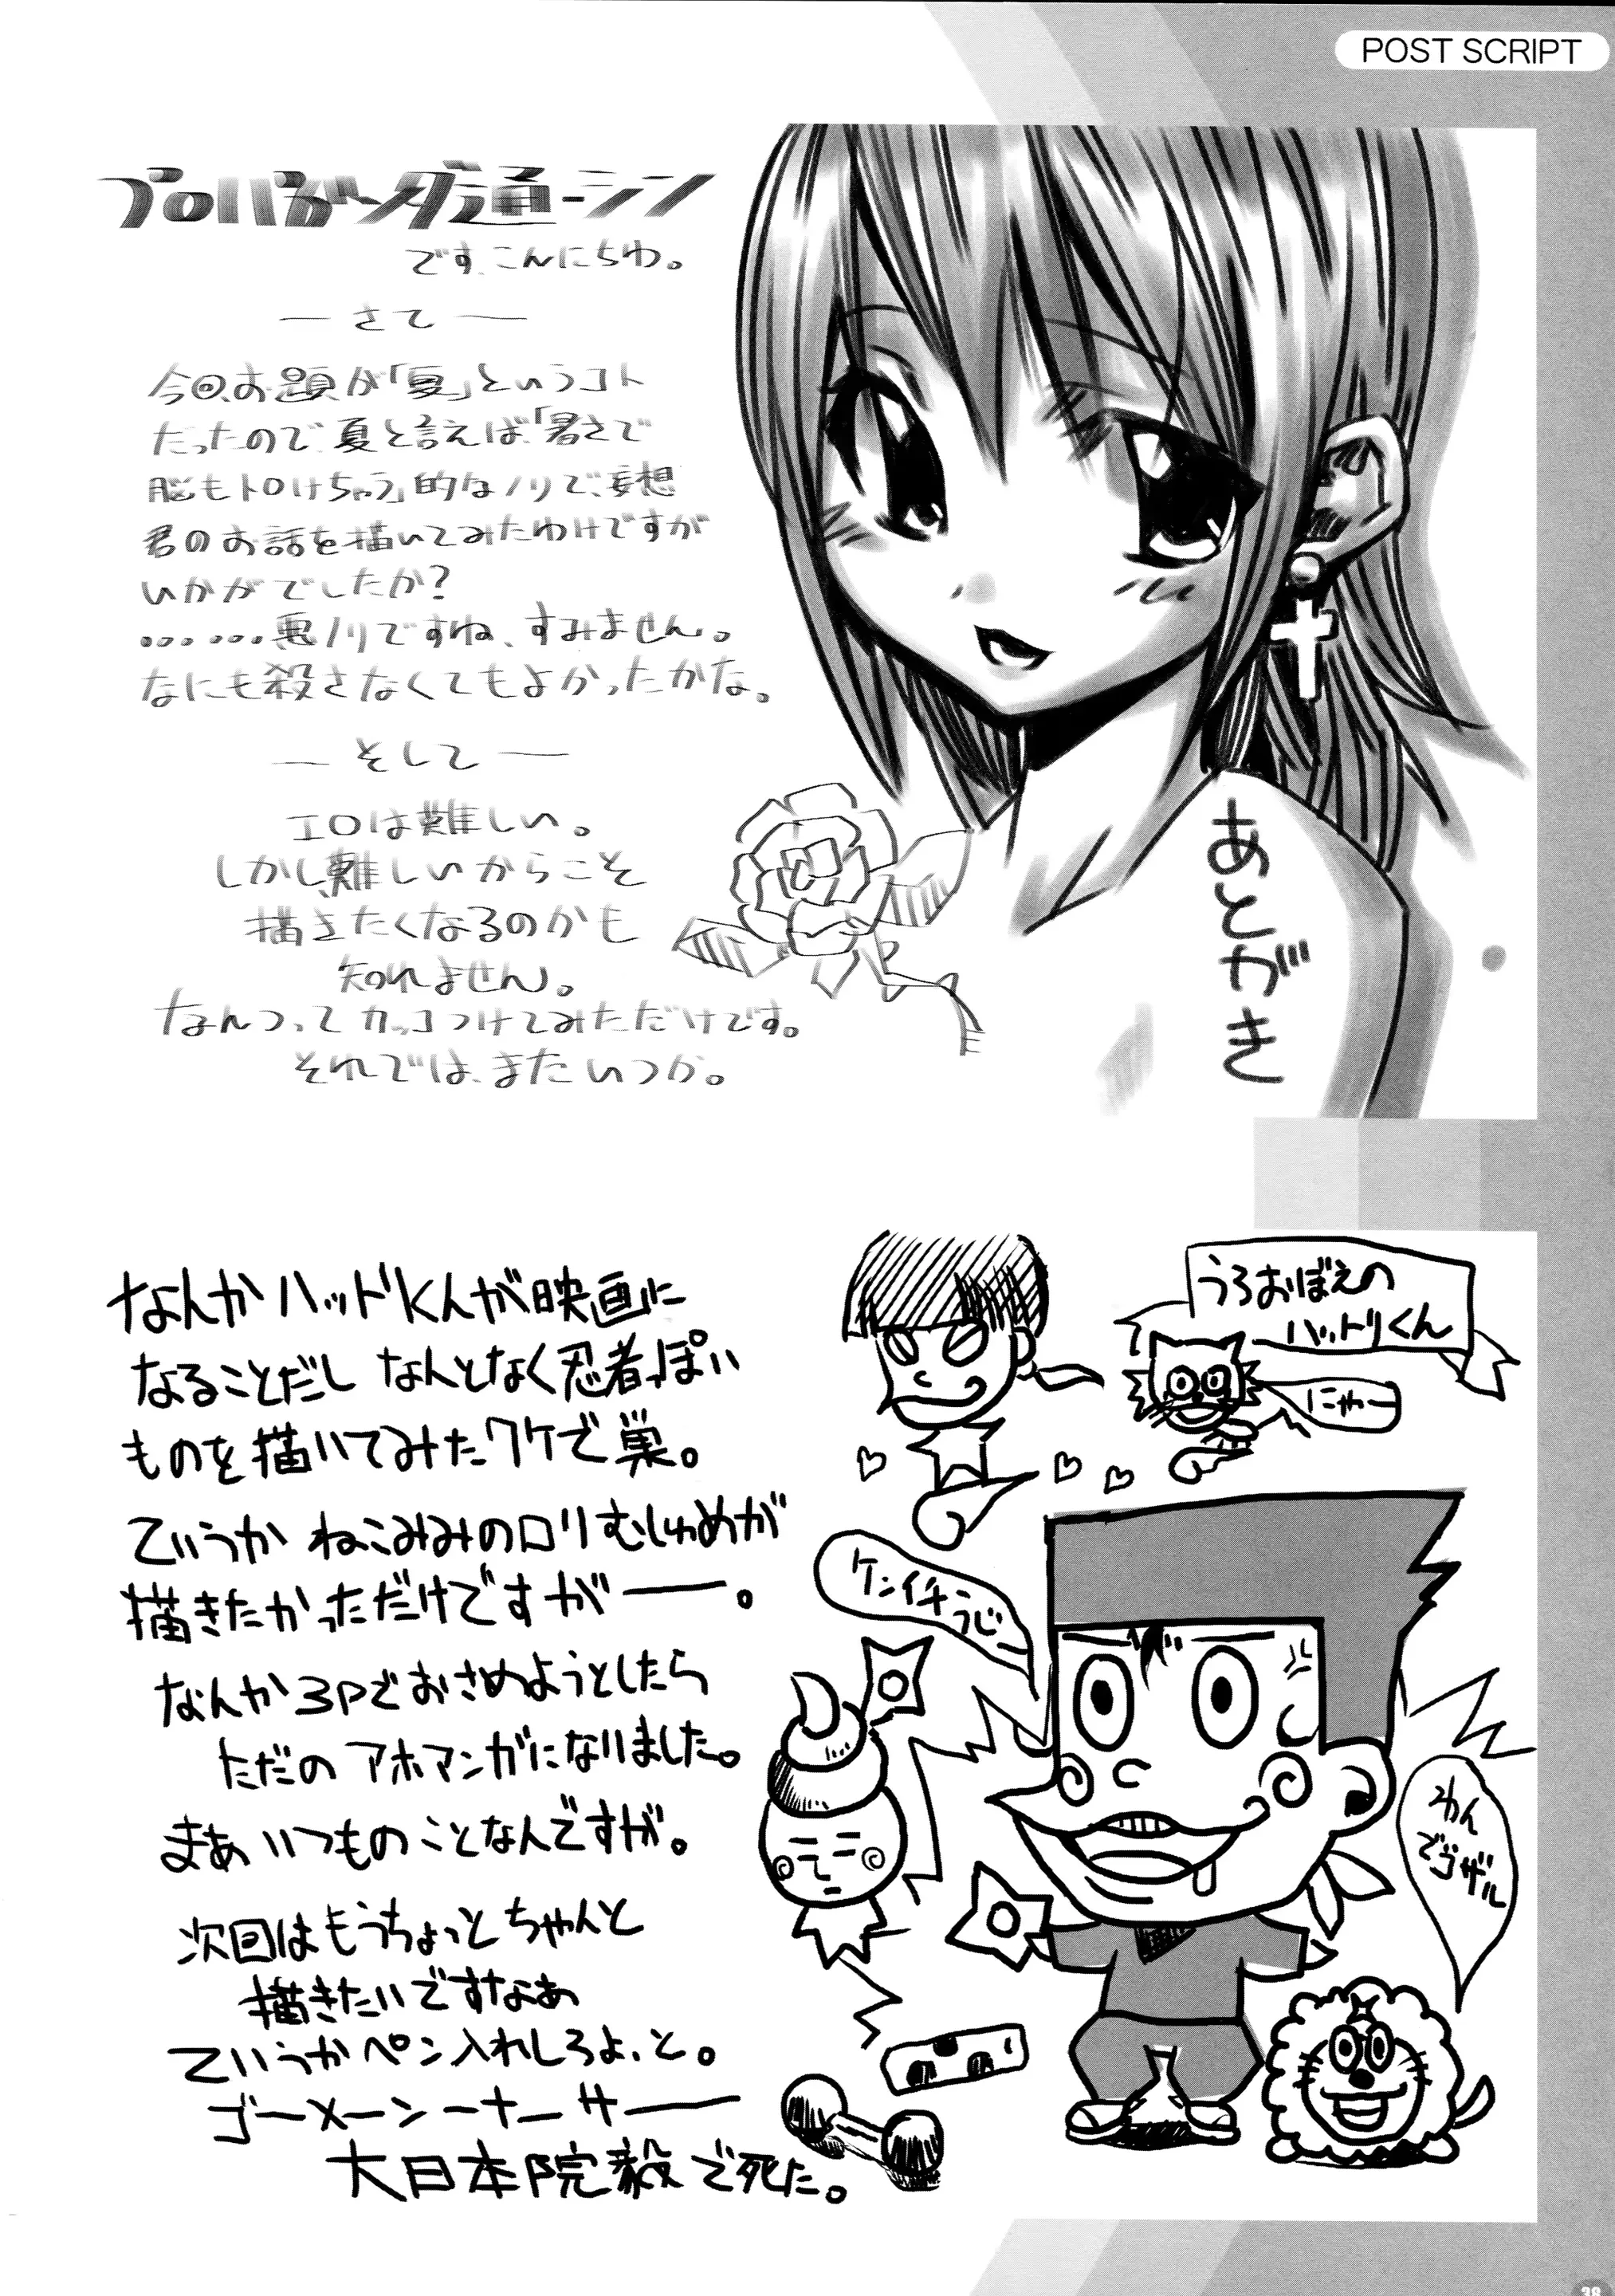 POST SCRIPT
プロパガンダ通ーシン
です、こんにちわ。
― さて ―
今回、お題が「夏」というコト
だったので、夏と言えば「暑さで
脳もトロけちゃう」的なノリで、妄想
君のお話を描いてみたわけですが
いかがでしたか?
………悪ノリですね、すみません。
なにも殺さなくてもよかったかな。
― そして ―
エロは難しい。
しかし、難しいからこそ
描きたくなるのかも
知れません。
なんつってカッコつけてみただけです。
それでは、またいつか。
あとがき
なんかハットリくんが映画に
なることだし なんとなく忍者っぽい
ものを描いてみたワケで巣。
ていうか ねこみみのロリむしゅめが
描きたかっただけですがー。
なんか3Pでおさめようとしたら
ただの アホマンガになりました。
まあ いつものことなんですが。
次回はもうちょっとちゃんと
描きたいですなあ
ていうかペン入れしろよ、と。
ゴーメーンーナーサー
大日本院毅で死た。
うろおぼえの
ハットリくん
にゃー
ケンイチうじー
わん
でゴザル
38